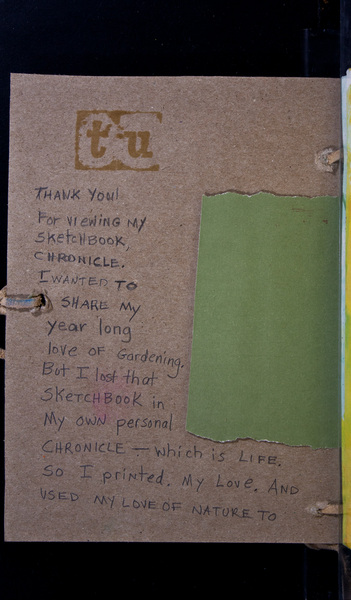 tu
THANK YOU!
For viewing my
SKETCHBOOK,
CHRONICLE.
I WANTED TO
SHARE My
year long
love of Gardening.
But I lost that
SKETCHBOOK in
My own personal
CHRONICLE — which is LIFE.
So I printed. My Love. AND
USED MY LOVE OF NATURE TO